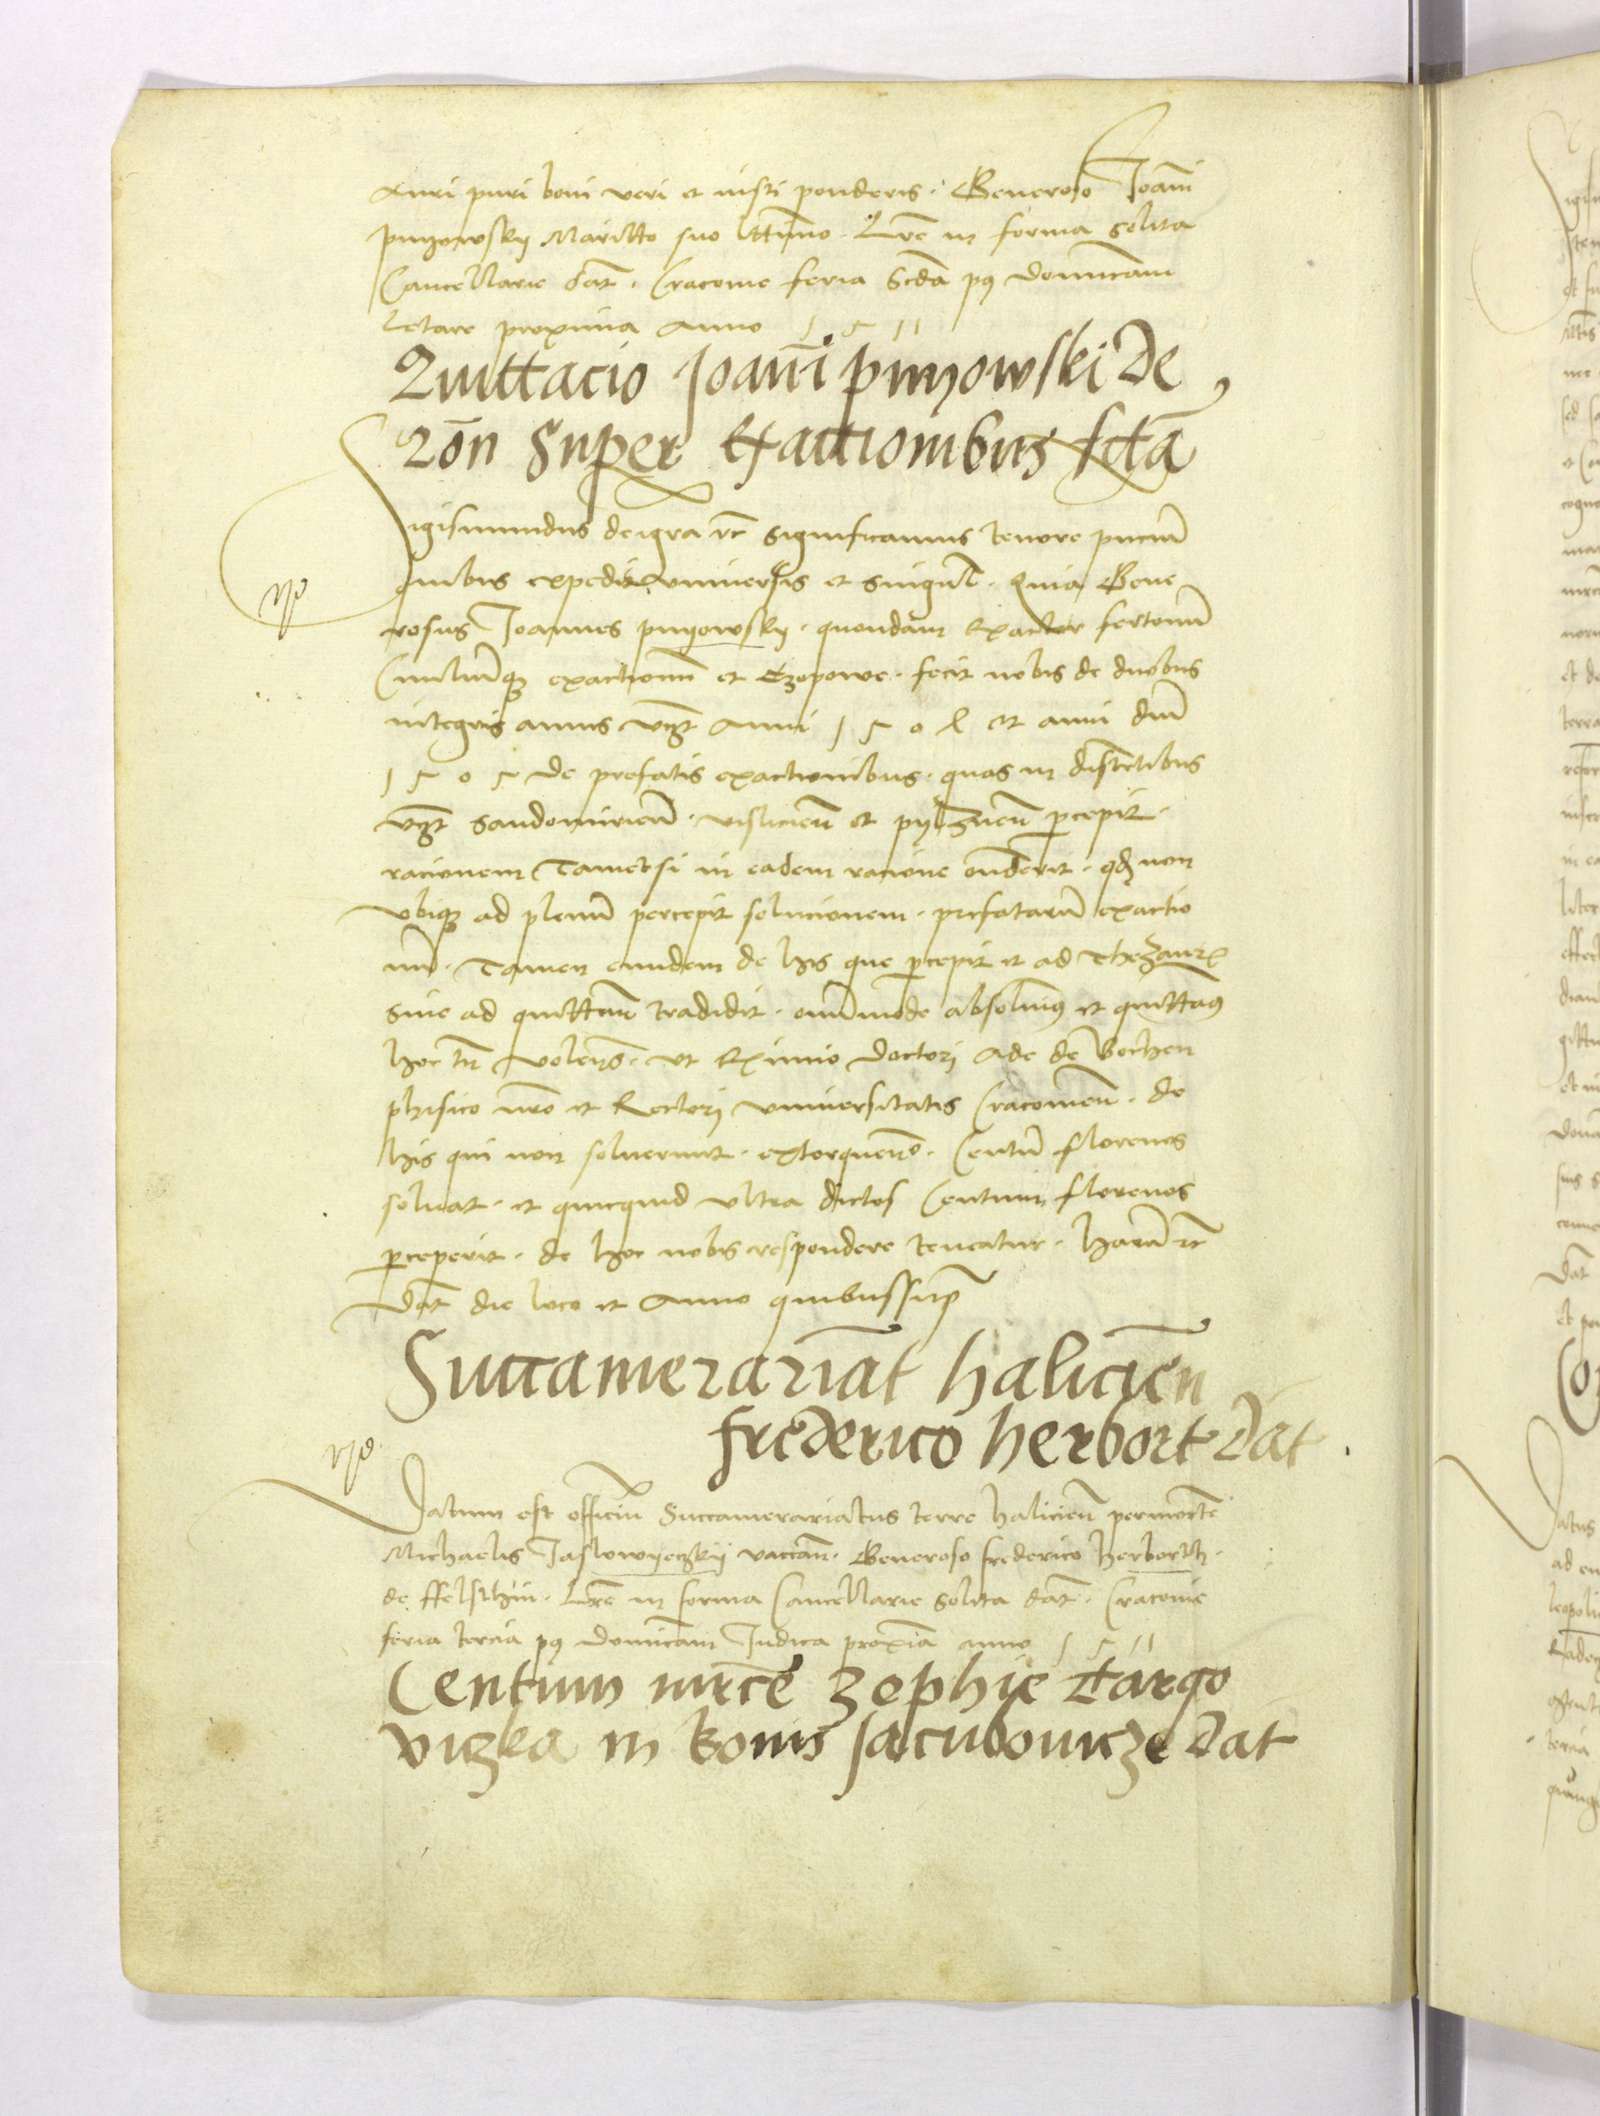 Auri puri boni veri et iusti ponderis. Generoso Joāni
pnyowskÿ Maritto suo lttimo. Lrē in forma solita
Cancellarie dāt. Cracovie feria Scdā pꝯ Dominicam
letare proxima Anno 1511
Quittacio Joaňi pnyowski de
rōn Super Exactionibus fctā
Sigismundus dei gra rc̄ Significamus tenore pnciū
quibus expedit universis et singul̄. Quia Gene
rosus Joannes pnyowskÿ. quondam Exactor fertonū
Civiliūqꝫ exactionum et Czopowe. fecit nobis de duobus
integris annis vꝫt Anni 1504 et anni dm̄
1505 de prefatis exactionibus. quas in districtibus
vꝫt Sandomirieñ. vislicieñ et pÿlzneñ percepit.
racionem Tametsi in eadem racione oñderit. qꝫ non
ubiqꝫ ad plenū percepit solucionem. prefatarū exactio
nū. Tamen eundem de his que percepit et ad Thezaur
sive ad quittanc̄ tradidit. omnimode absolvimꝯ et quittamꝯ
hoc tn̄ volentes. ut Eximio doctori Ade de Bochen
phisico nrō et Rectori universitatis Cracovieñ. de
his qui non solverunt. extorquendo. Centū florenos
solvat. et quicquid ultra dictos Centum florenos
perceperit. de hoc nobis respondere teneatur. harū rc̄
Dāt die loco et Anno quibus supra
Succamerariāt halicieñ
frederico herbort Dat
Datum est officiū Succamerariatus terre halicieñ per mortē
Michaelis Jaslowyeczkÿ vacan̄. Generoso frederico herborth.
de ffelsthin. Lrē in forma Cancellarie Solita dāt. Cracovie
feria tercia pꝯ Dominicam Judica proximā anno 1511
Centum mrcē zophie Targo
viczka in bonis Jacubowicze Dat